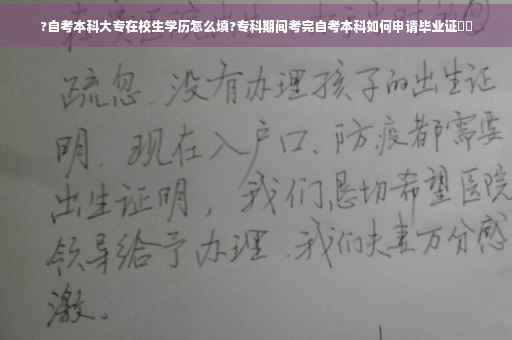 ?自考本科大专在校生学历怎么填?专科期间考完自考本科如何申请毕业证
疏忽、没有办理孩子的出生证
明、现在入户口、防疫都需要
出生证明，我们恳切希望医院
领导给予办理、我们夫妻万分感
激。